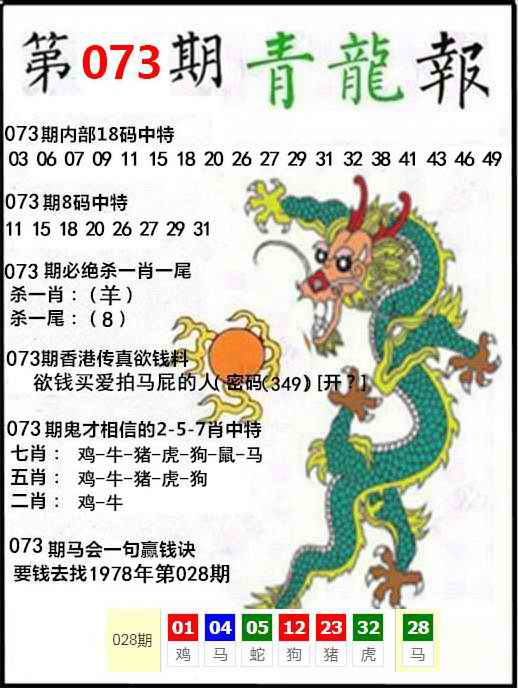 第073期青龍報
073期内部18码中特
03 06 07 09 11 15 18 20 26 27 29 31 32 38 41 43 46 49
073期8码中特
11 15 18 20 26 27 29 31
073 期必绝杀一肖一尾
杀一肖：（羊）
杀一尾：（8）
073期香港传真欲钱料
欲钱买爱拍马屁的人(密码(349) [开？]
073期鬼才相信的2-5-7肖中特
七肖： 鸡-牛-猪-虎-狗-鼠-马
五肖： 鸡-牛-猪-虎-狗
二肖： 鸡-牛
073 期马会一句赢钱诀
要钱去找1978年第028期
028期 01 04 05 12 23 32 28
鸡 马 蛇 狗 猪 虎 马